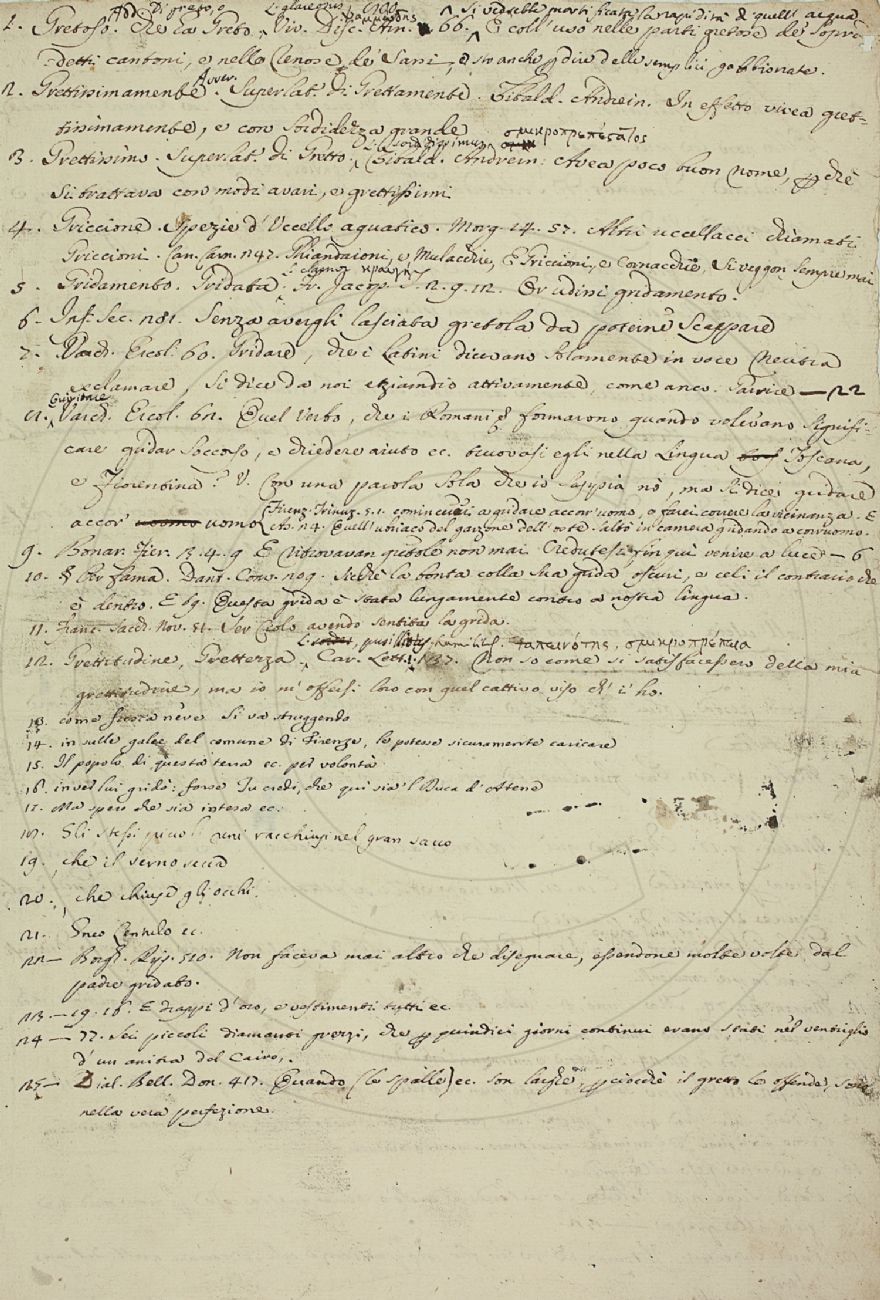 Add. Di greto, o L. glareosus, Gr. ψαμμώδης Si vedrebbe mortificata la rapidità di quell' acqua
1. Gretoso. Che ha Greto. Viv. Disc. Arn. 66. E coll' uso nelle parti gretose de' sopra-
detti cantoni, e nello Clenose de' Sassi, e sto anche p dire delle semplici gabbionate.
Avver.
2. Grettissimamente. Superlat. di Grettamente. Tibald. Andrein. In effetto vivea gret-
tissimamente, e con sordidezza grande σμικροπρεπέςατος
L. sordidissimus
3. Grettissimo. Superlat. di Gretto. Tibald. Andrein: Avea poco buon nome, p chè
si trattava con modi avari, e grettissimi
4. Griccione. Spezie d' Uccello aquatico. Morg. 14. 57. Altri uccellacci chiamati
Griccioni. Can. Carn. 142. Ghiandaioni, e Mulacchie, E Griccioni, e Cornacchie, Si veggon sempre mai
L. clamor κραυγή
5. Gridamento. Gridata. Fr. Jacop. T. 2. 9. 12. Or udini gridamento.
6. Inf. Sec. 181. Senza avergli lasciata gretola da poterne scappare
7. Varch. Ercol. 60. Gridare, che i Latini dicevano solamente in voce Neutra
exclamare, si dice da noi eziamdio attivamente, come anco. Garrire — 22
Quiritare
Varch. Ercol. 62. Quel verbo, che i Romani formarono quando volevano signifi-
care gridar soccorso, e chiedere aiuto ec. truovasi egli nella Lingua Toscana,
e Fiorentina? V. Con una parola sola che io sappia nò, ma si dice gridare
accor' uomo uomo Firenz. Trinuz. 5.1. cominciati a gridare accor' uomo, a farci correre la vicinanza. E
At. 4. Quell' ubriaco del garzone dell' oste saltò in camera gridando accorruomo.
9. Bonar. Fier. 3. 4. 9 E ritrovavan gretole non mai Credutesi fin quì venire a luce — 6
10. Per fama. Dant. Conv. 209. Sicchè la bontà colla sua grida oscuri, e celi il contrario che
è dentro. E 69. Questa grida è stata lungamente contro a nostra lingua.
11. Franc. Sacch. Nov. 51. Ser Ciolo avendo sentita la grida.
L. sordes, pusillitas, humilitas. ταπεινότης, σμικροπρέπεια
12. Grettitudine, Grettezza. Car. Lett. 137. Non so come si satisfacessero della mia
grettitudine, ma io m' offersi loro con quel cattivo viso ch' i' ho.
13. come fresca neve Si va struggendo
14. in sulle galee del comune di Firenze, lo potesse sicuramente caricare
15. Il popolo di questa terra ec. per volontà
16. inver lui gridò: forse Tu credi, che quì sia 'l Duca d' Atene
17. Ma spero che sia intesa ec.
Gli stessi racchiusi nel gran sacco
19. che il verno secca
20. che chiuse gli occhi
21. Gneo Lentulo ec.
22 — Borgh. Rip. 510. Non faceva mai altro che disegnare, essendone molte volte dal
padre gridato.
23 — 19. 18. E drappi d' oro, e vestimenti tutti ec.
24 — 77. Sei piccoli diamanti grezzi, che p quindici giorni continui erano stati nel ventriglio
d' un anitra del Cairo,.
25 — Dial. Bell. Don. 417. Quando (le spalle) ec. son larghe, perciocchè il gretto le offende, sono
nella vera perfezione.